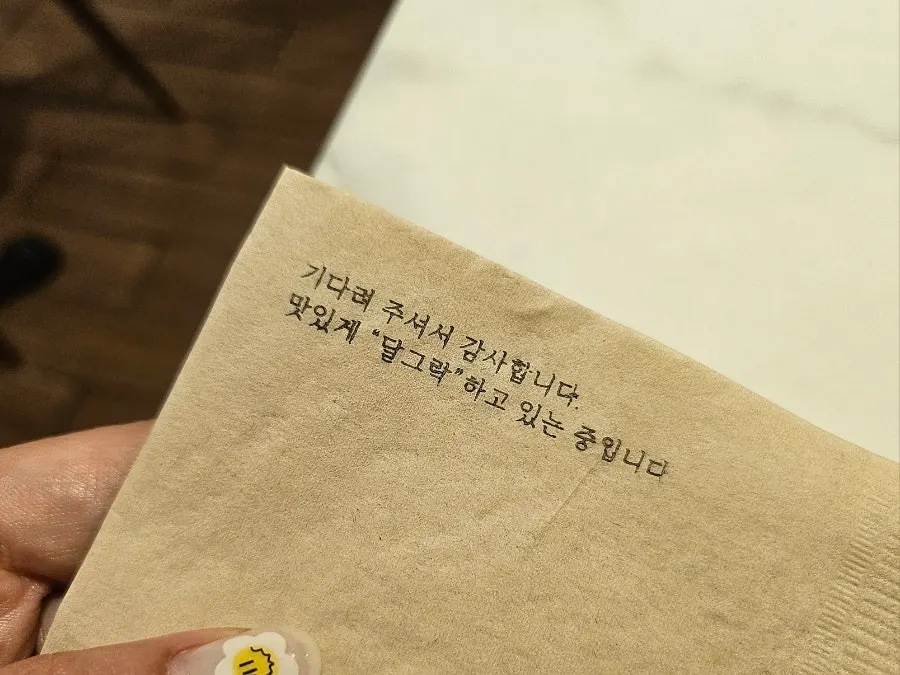 기다려 주셔서 감사합니다.
맛있게 "달그락"하고 있는 중입니다